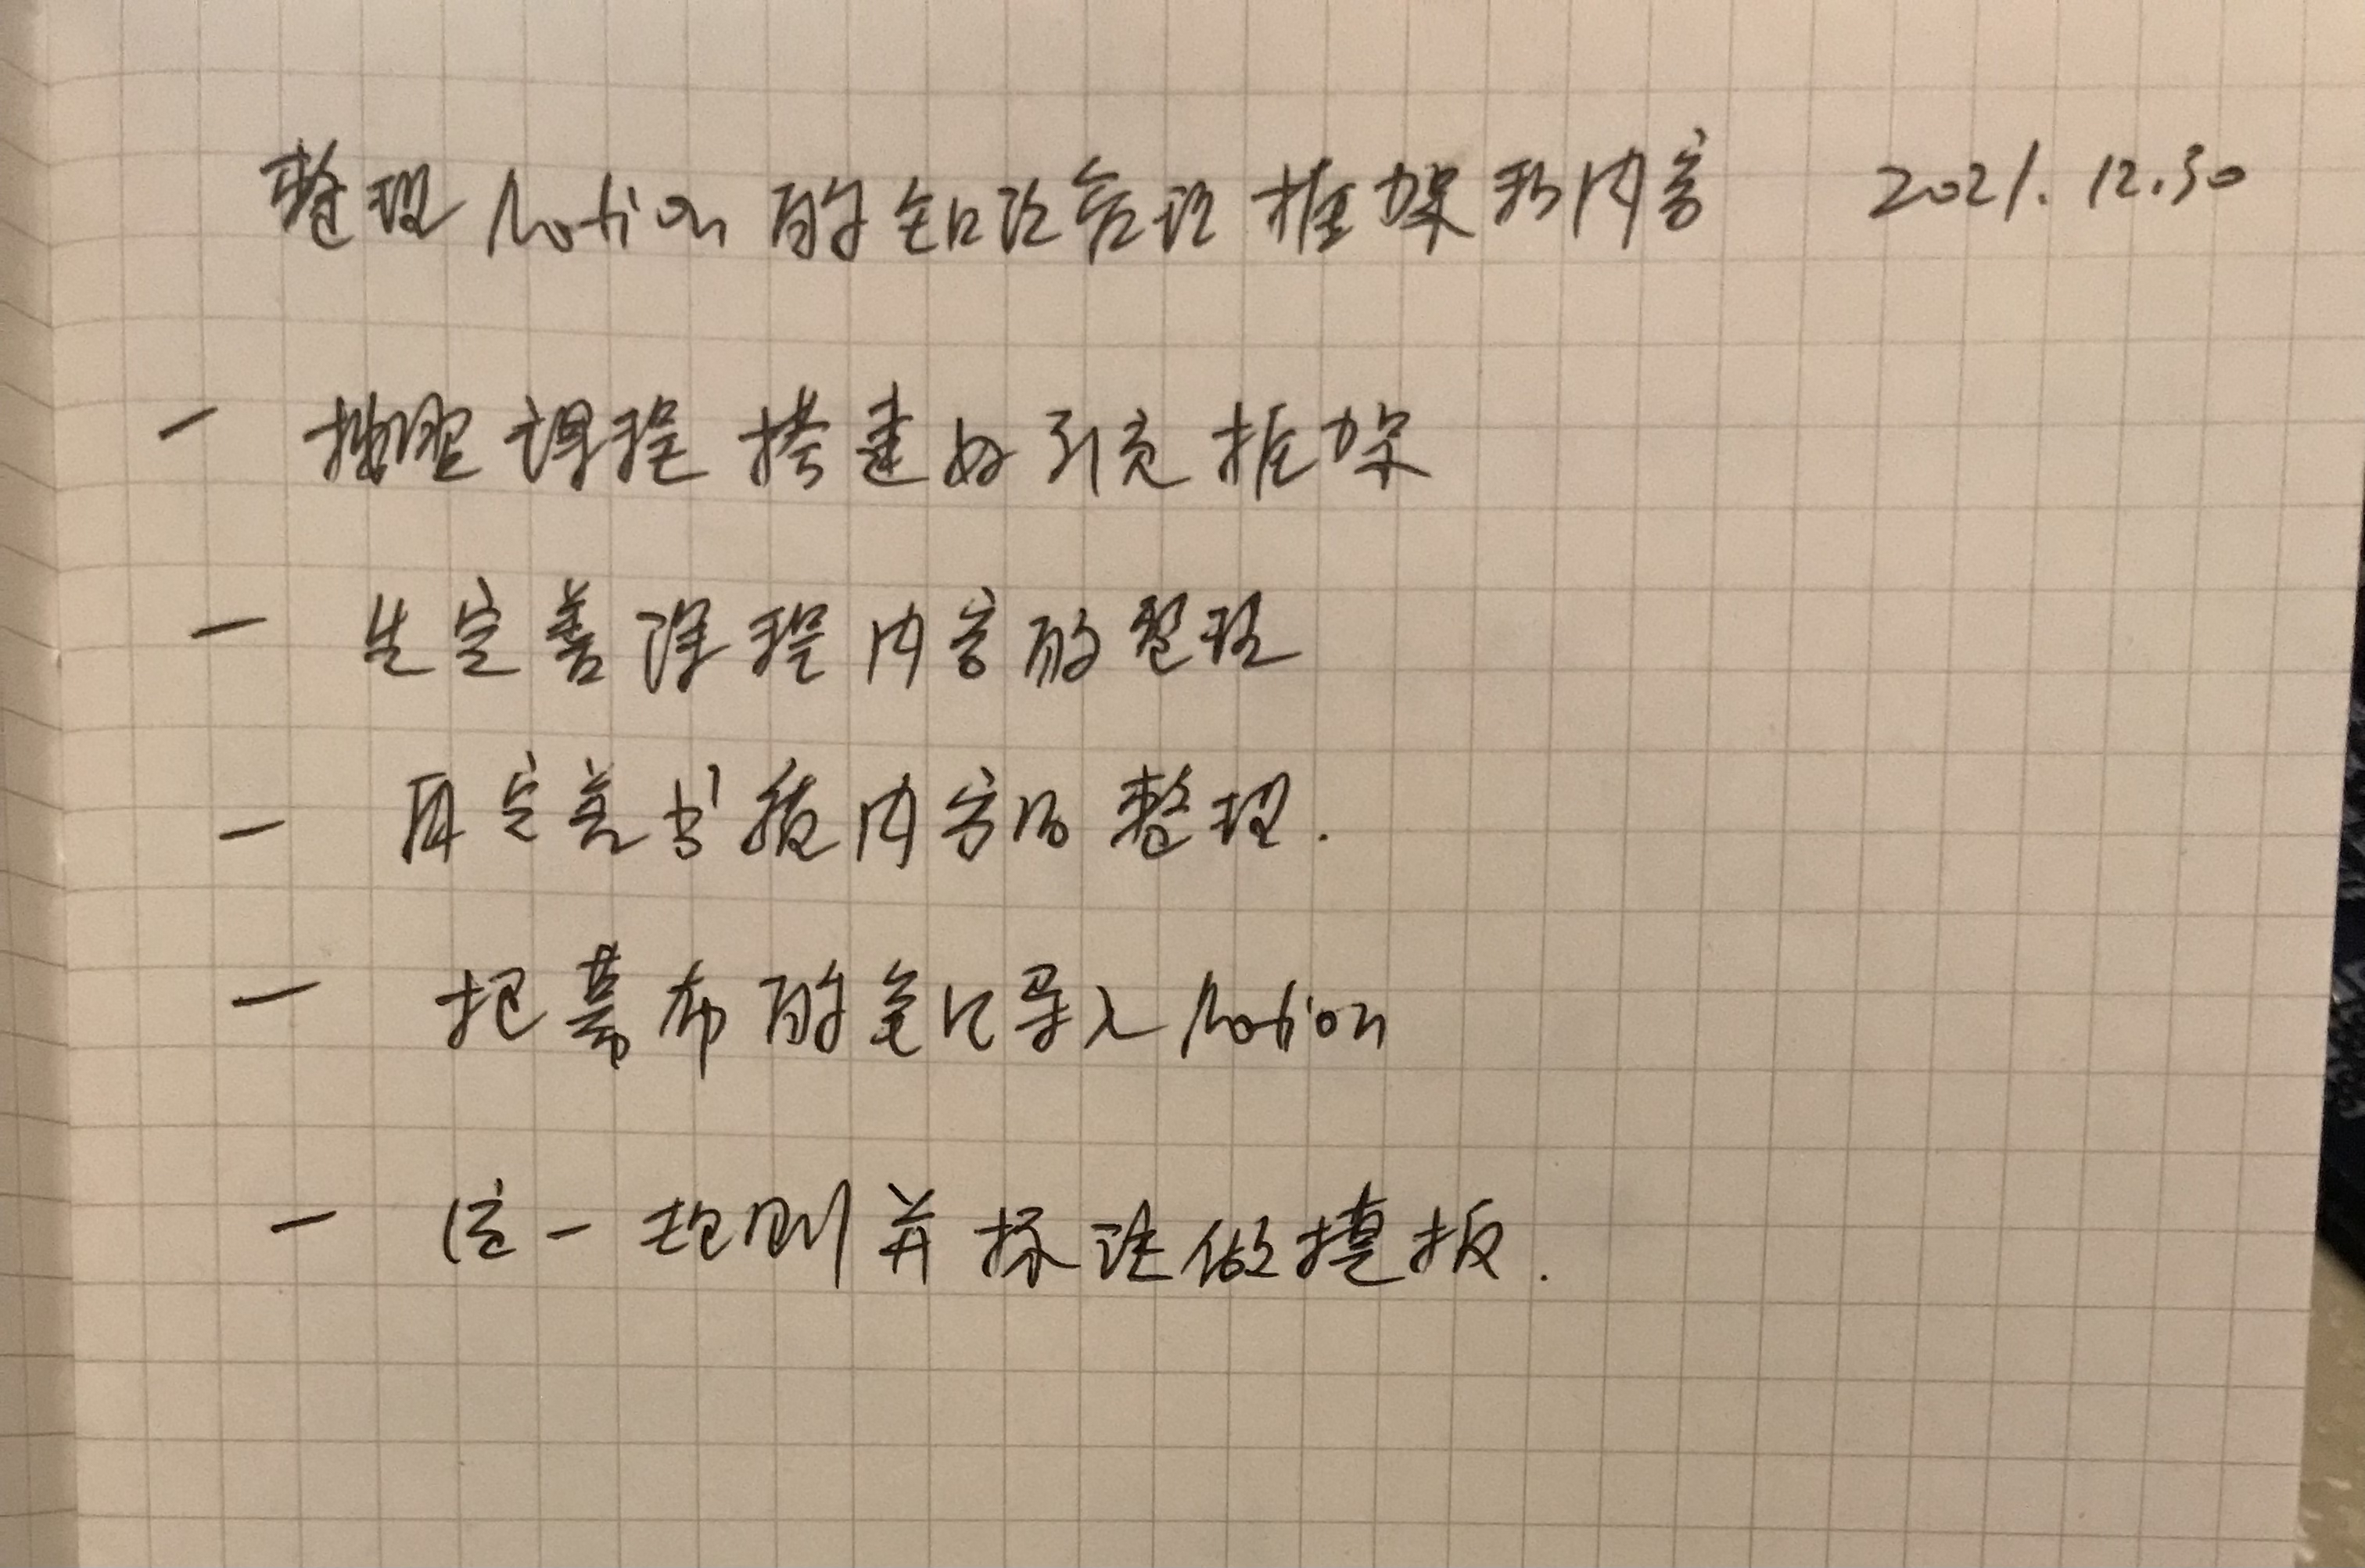 整理 Notion 的知识管理框架和内容 2021.12.30
- 按照课程搭建好引克框架
- 先完善课程内容的整理
- 再完善书籍内容的整理.
- 把幕布的笔记录入 Notion
- 统一规则并标注做模板.